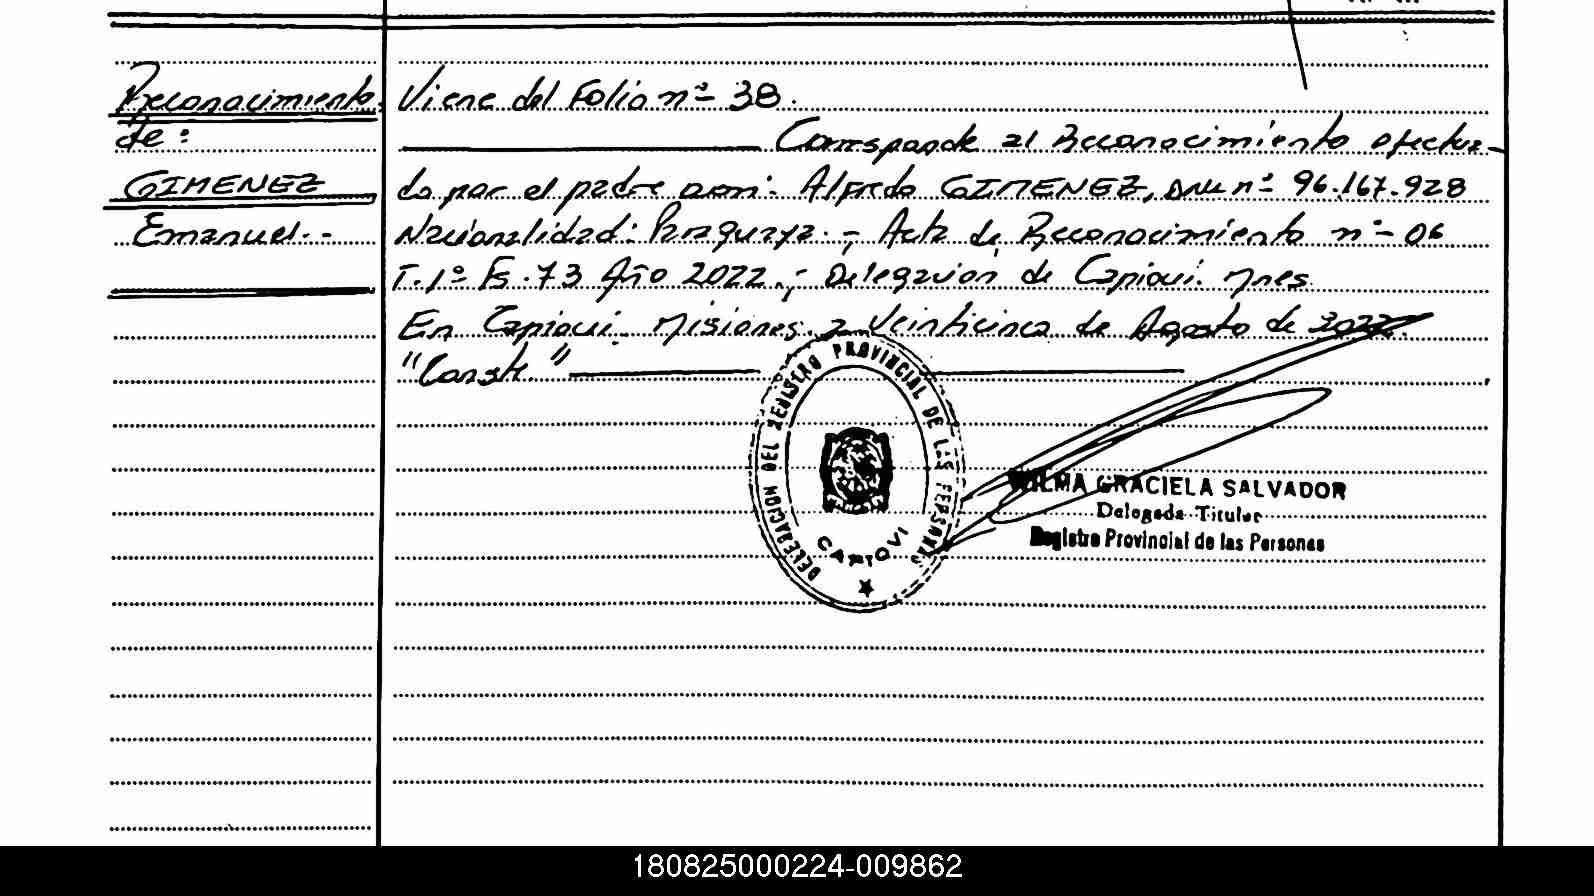 Reconocimiento
de:
GIMENEZ
Emanuel.-
Viene del Folio nº 38.
Corresponde al Reconocimiento efectua-
do por el padre Don: Alfredo GIMENEZ, DNI nº 96.167.928
Nacionalidad: Paraguaya.-, Acta de Reconocimiento nº 06
T.1º Fs.73 Año 2022.-; Delegación de Capioví. Mnes
En Capioví. Misiones. a Veinticinco de Agosto de 2022.
"Conste."
DELEGACION DEL REGISTRO PROVINCIAL DE LAS PERSONAS
CAPIOVI
WILMA GRACIELA SALVADOR
Delegada Titular
Registro Provincial de las Personas
180825000224-009862